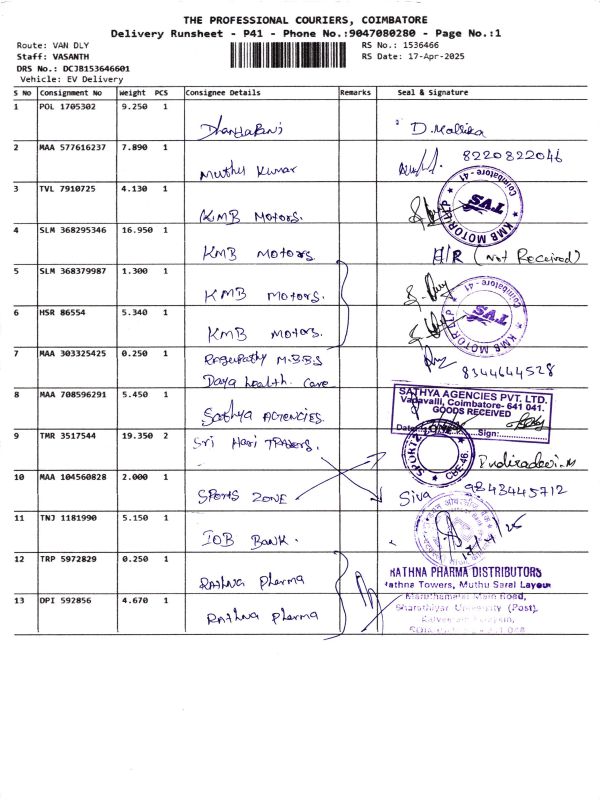 THE PROFESSIONAL COURIERS, COIMBATORE
Delivery Runsheet - P41 - Phone No.:9047080280 - Page No.:1
Route: VAN DLY
RS No.: 1536466
Staff: VASANTH
RS Date: 17-Apr-2025
DRS No.: DC38153646601
Vehicle: EV Delivery
S No Consignment No Weight PCS Consignee Details Remarks Seal & Signature
1 POL 1705302 9.250 1 D. Mallika
2 MAA 577616237 7.890 1 Muthu Kumar 8220822046
3 TVL 7910725 4.130 1 KMB Motors.
Coimbatore - 41
TVS
KMB MOTOR
4 SLM 368295346 16.950 1 KMB Motors. (Not Received)
5 SLM 368379987 1.300 1 KMB Motors.
6 HSR 86554 5.340 1 KMB Motors.
Coimbatore - 41
TVS
KMB MOTOR
7 MAA 303325425 0.250 1 Ragupathy M.B.B.S
Daya health. Care 8344644528
8 MAA 708596291 5.450 1 Sathya AGENCIES.
SATHYA AGENCIES PVT. LTD.
Vadavalli, Coimbatore- 641 041.
GOODS RECEIVED
Date: Sign:
9 TMR 3517544 19.350 2 Sri Hari TRADERS. Indiradevi.M
SPORTZ ZONE
CBE-46
10 MAA 104560828 2.000 1 SPORTS ZONE Siva 9843445712
11 TNJ 1181990 5.150 1 IOB BANK. 17/4/25
12 TRP 5972829 0.250 1 Rathna Pharma
13 DPI 592856 4.670 1 Rathna Pharma
RATHNA PHARMA DISTRIBUTORS
Rathna Towers, Muthu Saral Layout
Marathamalai Main Road,
Bharathiyar University (Post),